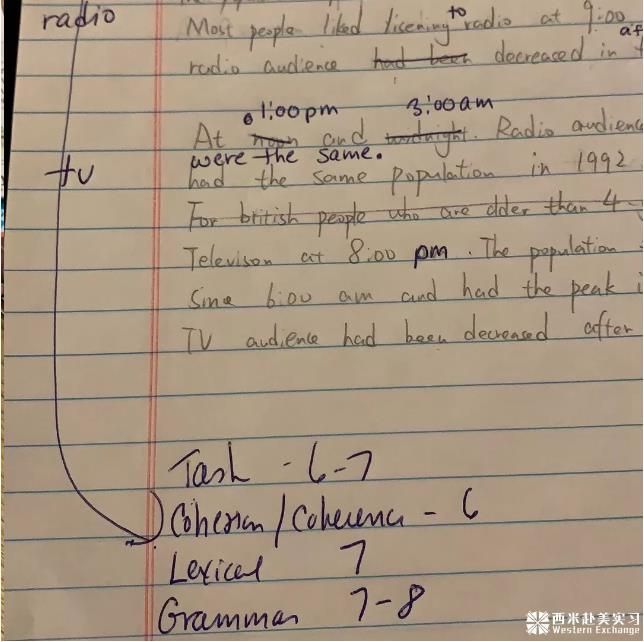 radio
to
Most people liked licening radio at 9:00
af
radio audience had been decreased in
1:00pm 3:00am
At noon and midnight. Radio audienc
were the same.
tv
had the same population in 1992
For british people who are older than 4
Televison at 8:00 pm. The population
Sine 6:00 am and had the peak i
TV audience had been decreased after
Task - 6-7
Cohesion/Coherence - 6
Lexical 7
Grammar 7-8
西米赴美实习
Western Exchange